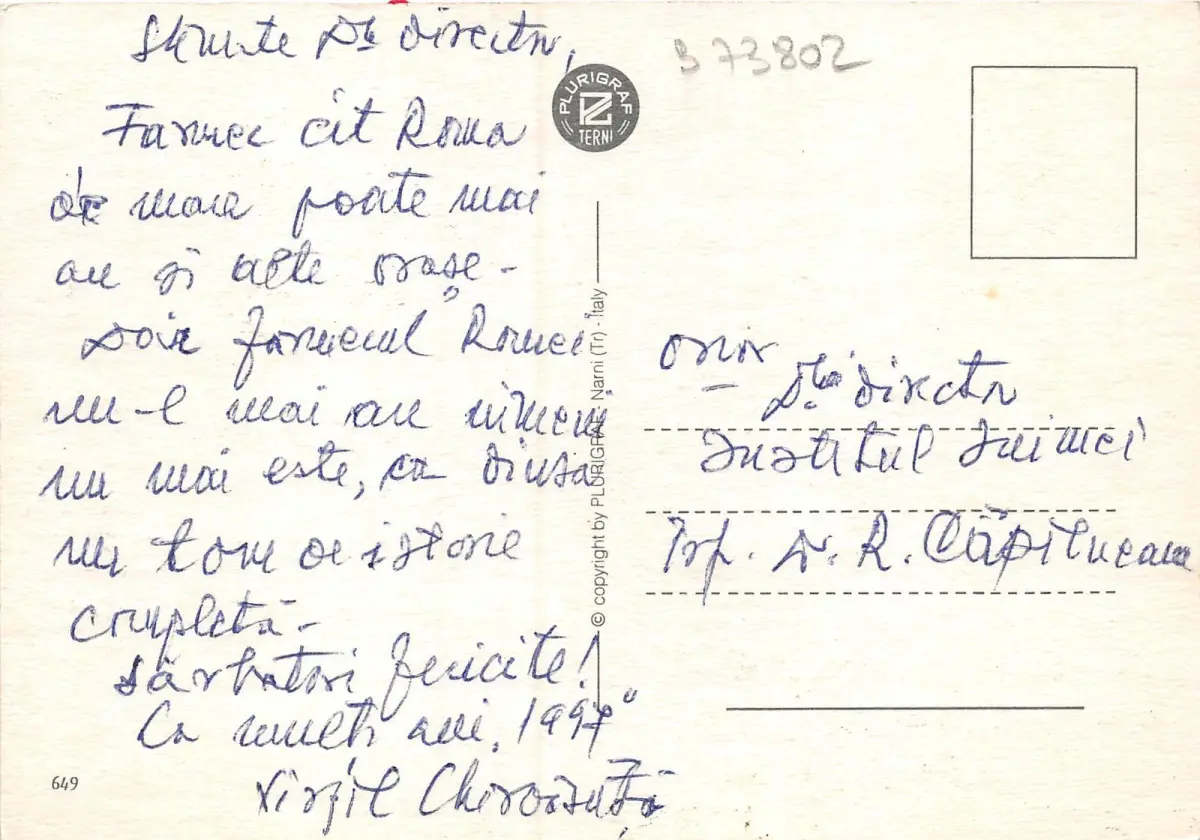 Stimate Dle Director,
Farmec cît Roma
de mare poate mai
au și alte orașe -
Doar farmecul "Romei
nu-l mai are nimeni
nu mai este, ca dînsa
un tom de istorie
completă -
Sărbători fericite!
Ca mulți ani, 1997"
Virgil
649
PLURIGRAF
TERNI
© copyright by PLURIGRAF Narni (Tr) - Italy
B 73802
Onor
Dlui Director
Institutul Inimei
Prf. Dr. R. Căpîlneanu